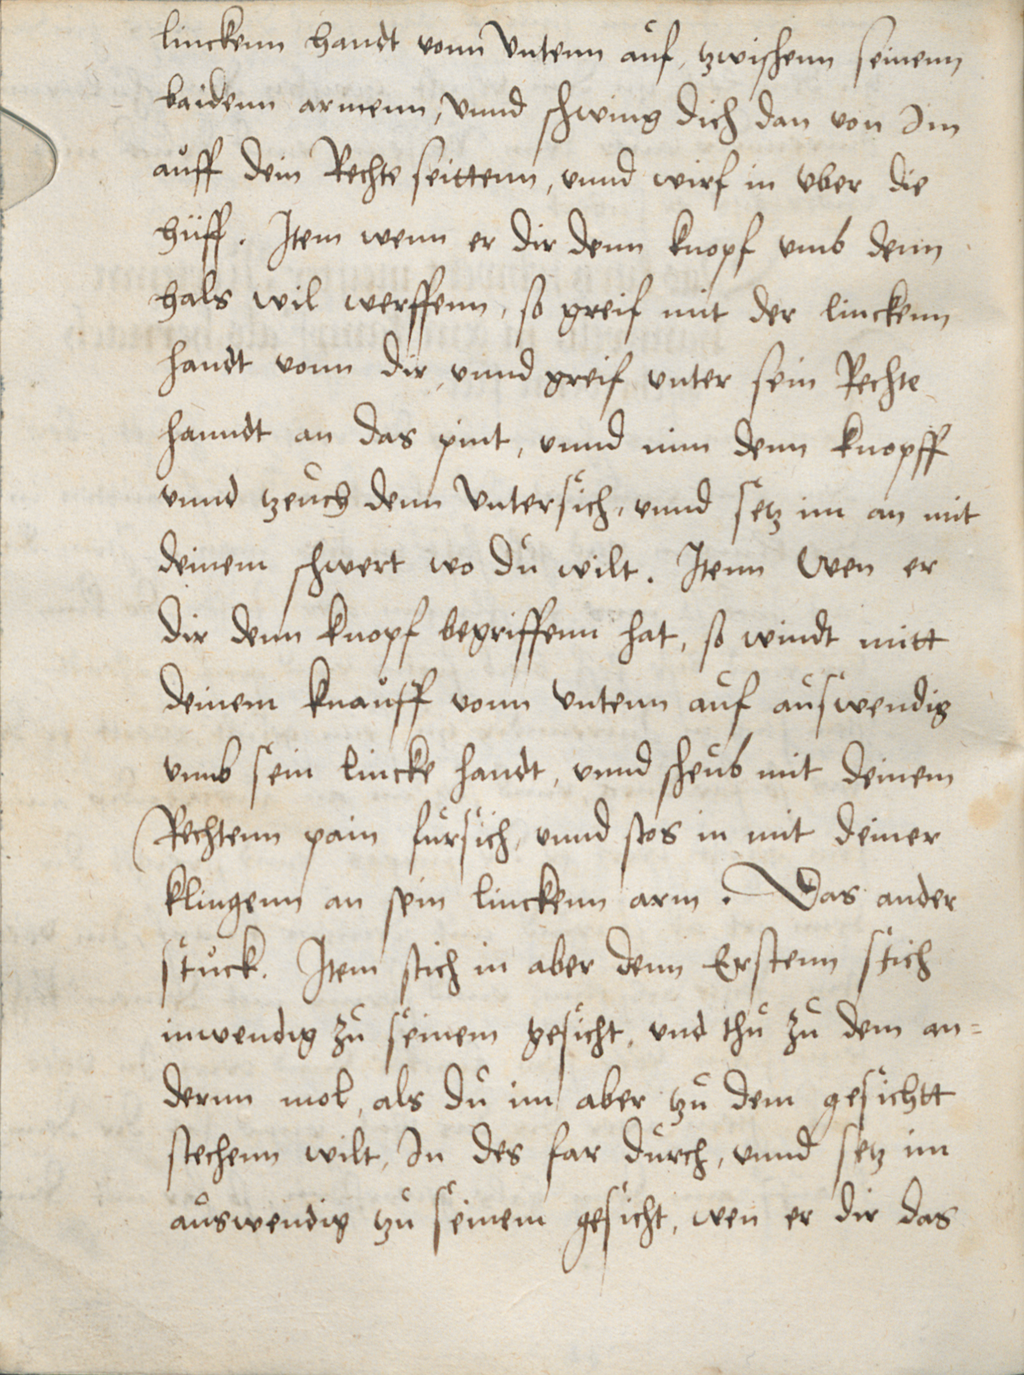 linckenn handt vonn vntenn auf, tzwischenn seinenn
baidenn armenn, vnnd schwing dich dan von Im
auff dein Rechte seittenn, vnnd wirf in vber die
hüff. Item wenn er dir denn knopf vmb denn
hals wil werffenn, so greif mit der linckenn
handt vonn dir, vnnd greif vnter sein Rechte
hanndt an das pint, vnnd nim denn knopff
vnnd tzeuch denn vntersich, vnnd setz im an mit
deinem schwert wo du wilt. Itenn Wen er
dir denn knopf begriffenn hat, so windt mitt
deinem knauff vonn vntenn auf auswendig
vmb sein lincke handt, vnnd scheub mit deinem
Rechtenn pain fursich, vnnd stos in mit deiner
klingenn an sein linckenn arm. Das ander
stuck. Item stich in aber denn Erstenn stich
inwendig zu seinem gesicht, vnd thu zu dem an=
dernn mol, als du im aber tzu dem gesichtt
stechenn wilt, In des far durch, vnnd setz im
auswendig tzu seinem gesicht, wen er dir das